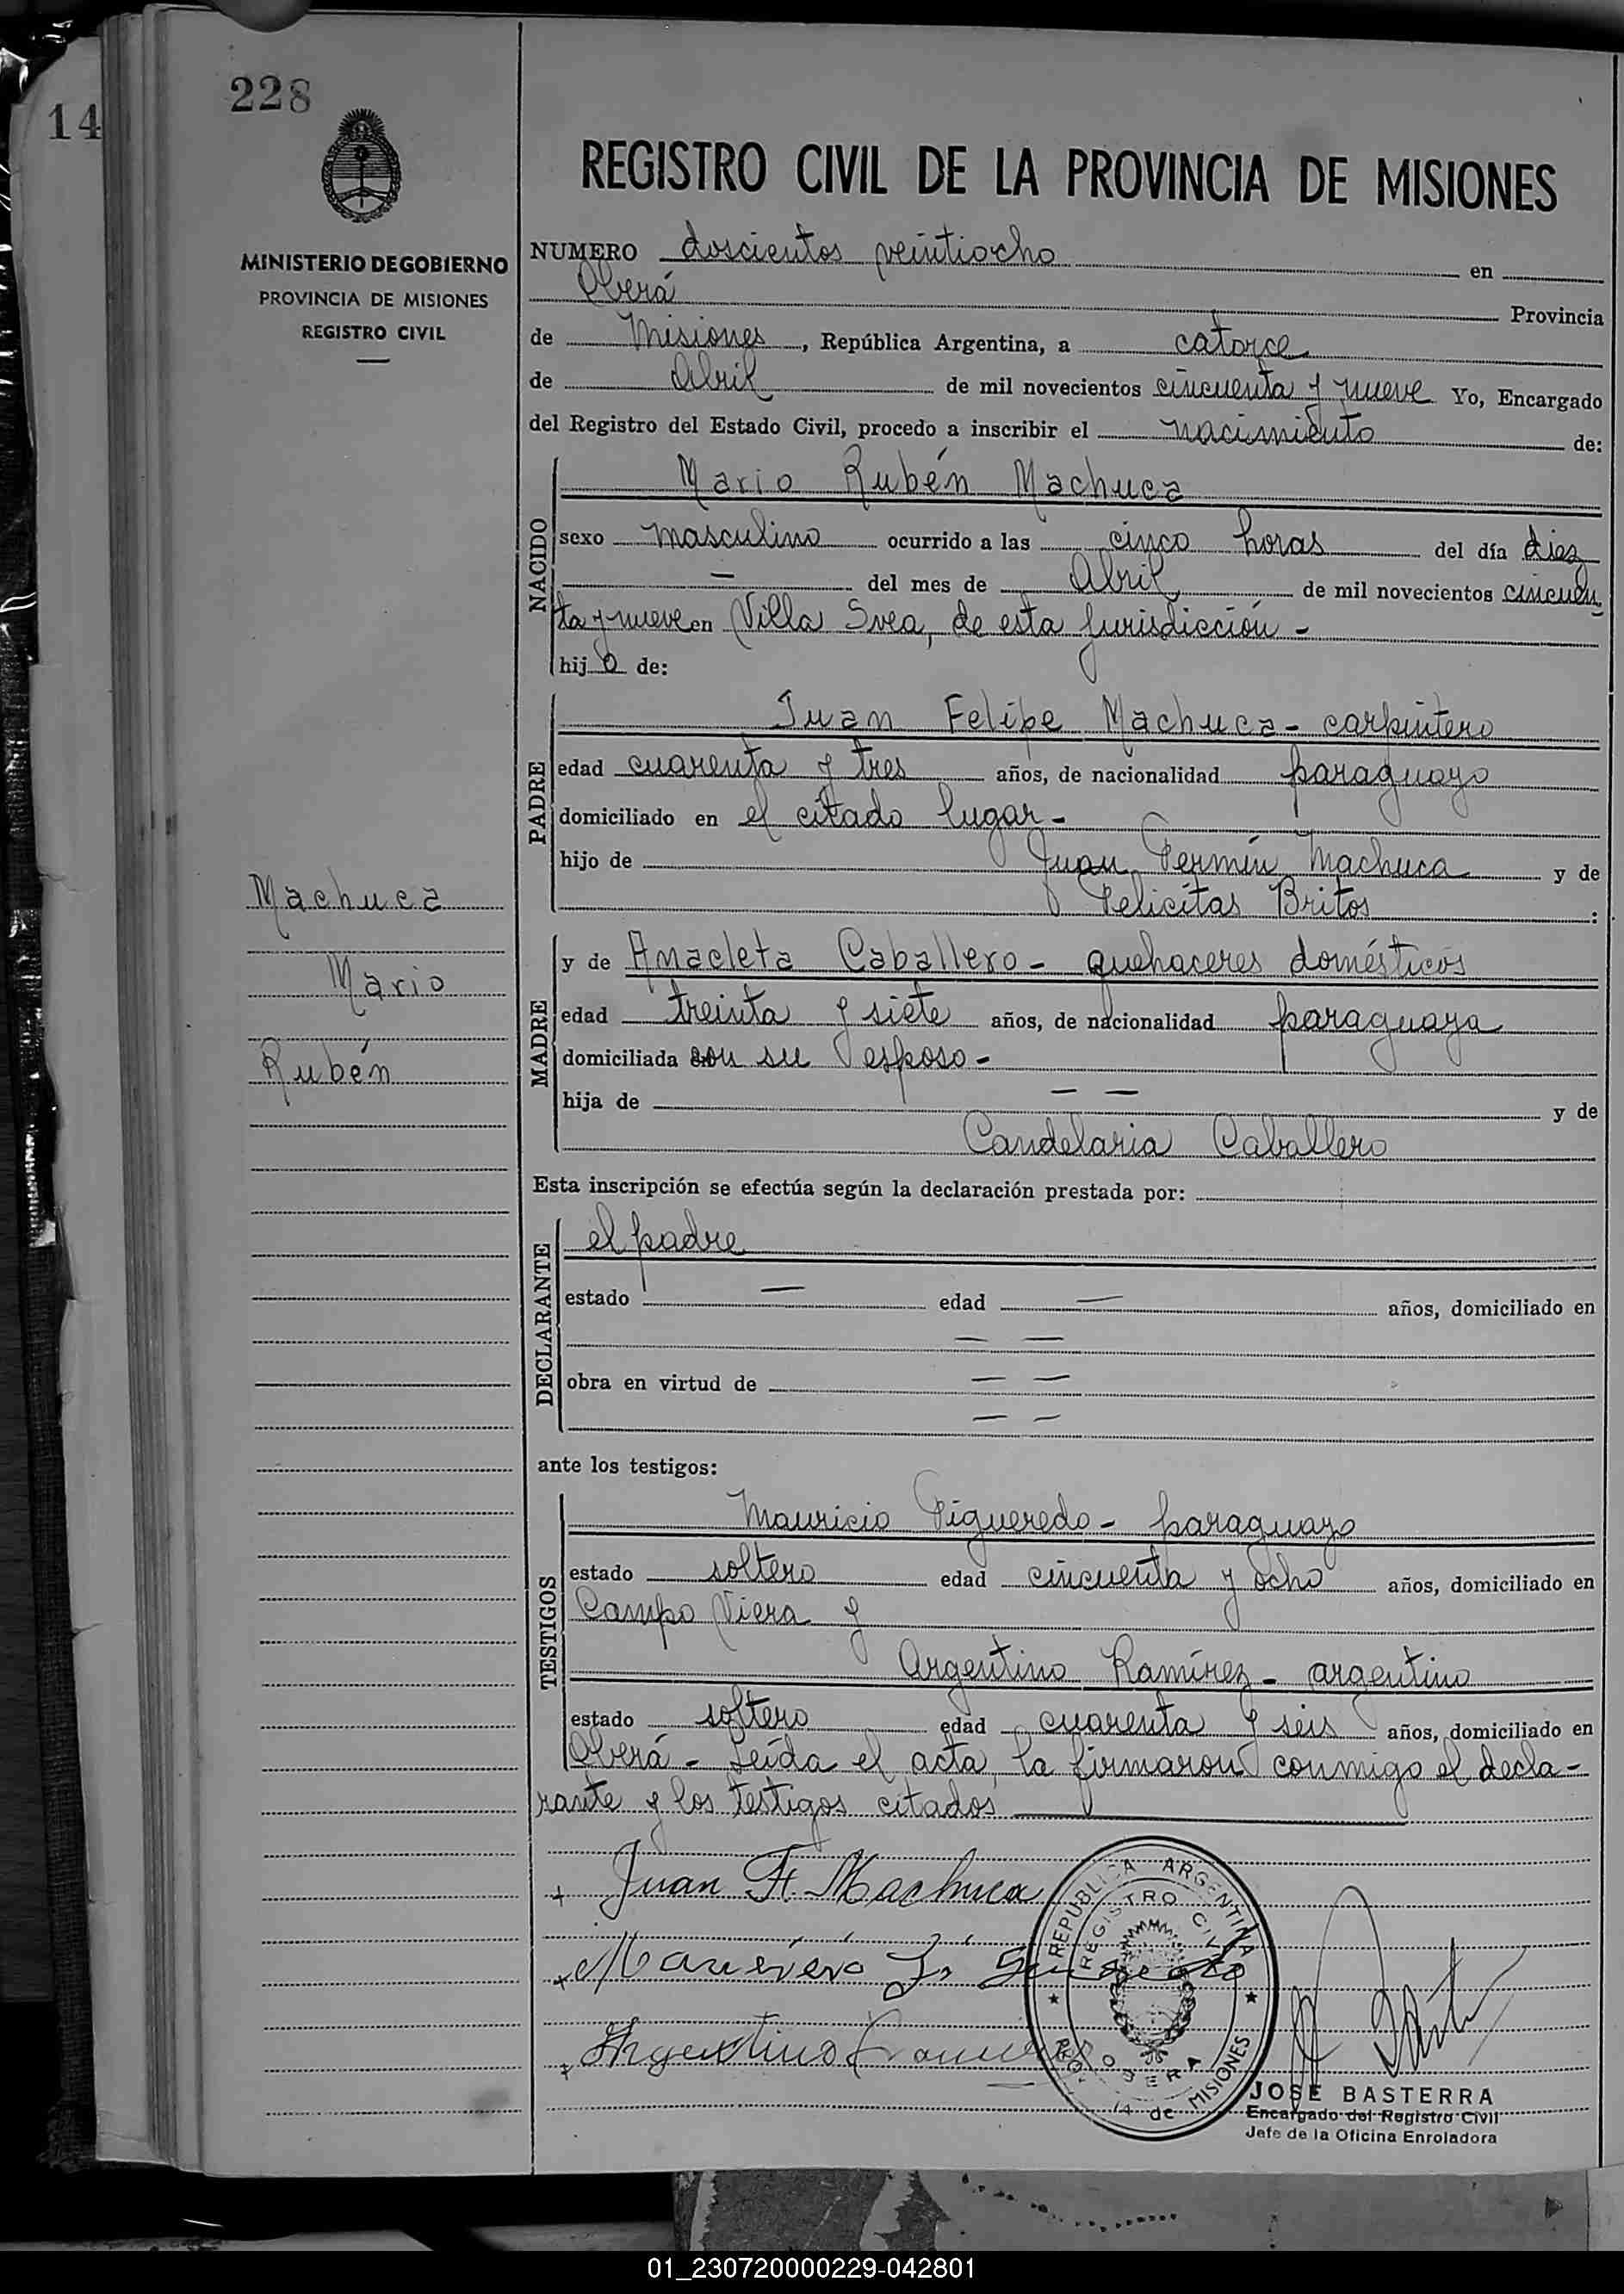 228
14
MINISTERIO DE GOBIERNO
PROVINCIA DE MISIONES
REGISTRO CIVIL
REGISTRO CIVIL DE LA PROVINCIA DE MISIONES
NUMERO doscientos veintiocho en
Oberá Provincia
de Misiones, República Argentina, a catorce
de Abril de mil novecientos cincuenta y nueve Yo, Encargado
del Registro del Estado Civil, procedo a inscribir el nacimiento de:
NACIDO
Mario Rubén Machuca
sexo masculino ocurrido a las cinco horas del día diez
— del mes de Abril de mil novecientos cincuen
ta y nueve en Villa Svea, de esta jurisdicción -
hijo de:
PADRE
Juan Felipe Machuca - carpintero
edad cuarenta y tres años, de nacionalidad paraguayo
domiciliado en el citado lugar -
hijo de Juan Fermín Machuca y de
Felicitas Britos :
MADRE
y de Anacleta Caballero - quehaceres domésticos
edad treinta y siete años, de nacionalidad paraguaya
domiciliada con su esposo -
hija de — — y de
Candelaria Caballero
Esta inscripción se efectúa según la declaración prestada por:
DECLARANTE
el padre
estado — edad — años, domiciliado en
— —
obra en virtud de — —
— —
ante los testigos:
TESTIGOS
Mauricio Figueredo - paraguayo
estado soltero edad cincuenta y ocho años, domiciliado en
Campo Viera y
Argentino Ramírez - argentino
estado soltero edad cuarenta y seis años, domiciliado en
Oberá - Leída el acta, la firmaron conmigo el decla-
rante y los testigos citados
Machuca
Mario
Rubén
Juan F. Machuca
Argentino
REPUBLICA ARGENTINA
REGISTRO CIVIL
OBERA
MISIONES
JOSE BASTERRA
Encargado del Registro Civil
Jefe de la Oficina Enroladora
01_230720000229-042801